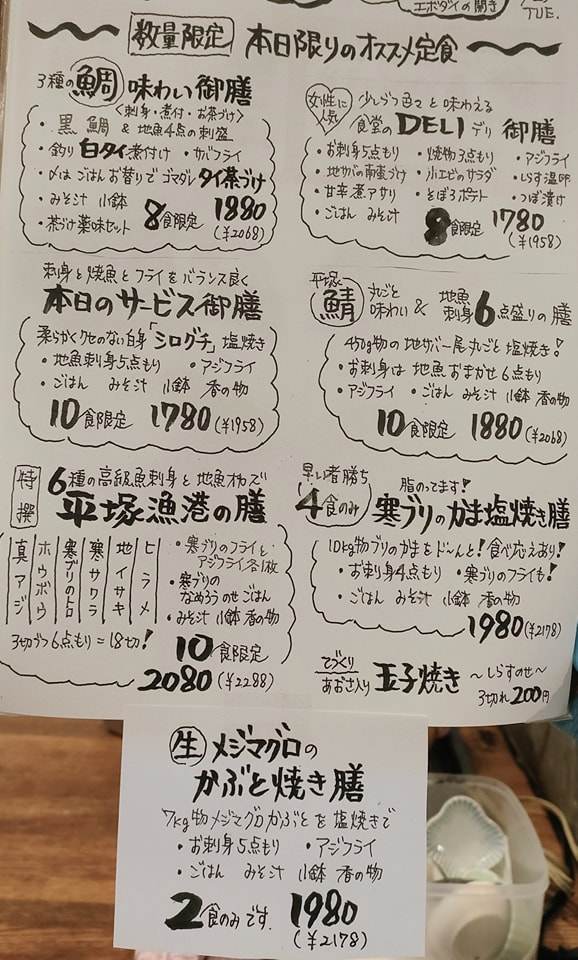 エボダイの開き
TUE.
数量限定 本日限りのオススメ定食
3種の鯛 味わい御膳
〈刺身・煮付・お茶づけ〉
・黒鯛&地魚4点の刺盛
・釣り白タイ煮付け ・サバフライ
・〆はごはんお替りでゴマダレタイ茶づけ
・みそ汁 小鉢
・茶づけ薬味セット
8食限定 1880
(¥2068)
女性に人気
少しづつ色々と味わえる
食堂のDELIデリ御膳
・お刺身5点もり ・焼物3点もり ・アジフライ
・地サバの南蛮づけ ・小エビのサラダ ・しらす温卵
・甘辛煮アサリ ・そぼろポテト ・つぼ漬け
・ごはん みそ汁
8食限定 1780
(¥1958)
刺身と焼魚とフライをバランス良く
本日のサービス御膳
柔らかくクセのない白身「シログチ」塩焼き
・地魚刺身5点もり ・アジフライ
・ごはん みそ汁 小鉢 香の物
10食限定 1780(¥1958)
平塚
鯖 丸ごと味わい & 地魚刺身6点盛りの膳
450g物の地サバ一尾丸ごと塩焼き!
・お刺身は地魚おまかせ6点もり
・アジフライ ・ごはん みそ汁 小鉢 香の物
10食限定 1880(¥2068)
特撰
6種の高級魚刺身と地魚オカズ
平塚漁港の膳
ヒラメ
地イサキ
寒サワラ
寒ブリのトロ
ホウボウ
真アジ
3切づつ6点もり=18切!
・寒ブリのフライとアジフライ各1枚
・寒ブリのなめろうのせごはん
・みそ汁 小鉢 香の物
10食限定
2080(¥2288)
早い者勝ち
4食のみ
脂のってます!
寒ブリのかま塩焼き膳
10kg物ブリのかまをド〜んと!食べ応えあり!
・お刺身4点もり ・寒ブリのフライも!
・ごはん みそ汁 小鉢 香の物
1980(¥2178)
てづくり
あおさ入り 玉子焼き 〜しらすのせ〜
3切れ200円
生 メジマグロの
かぶと焼き膳
7kg物メジマグロかぶとを塩焼きで
・お刺身5点もり ・アジフライ
・ごはん みそ汁 小鉢 香の物
2食のみです. 1980
(¥2178)